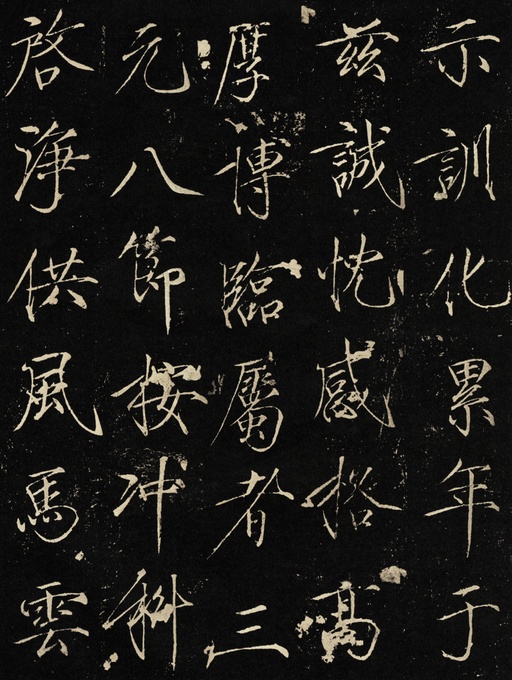 示訓化累年于
兹誠忱感格高
厚博臨屬者三
元八節按冲科
啓浄供風馬雲